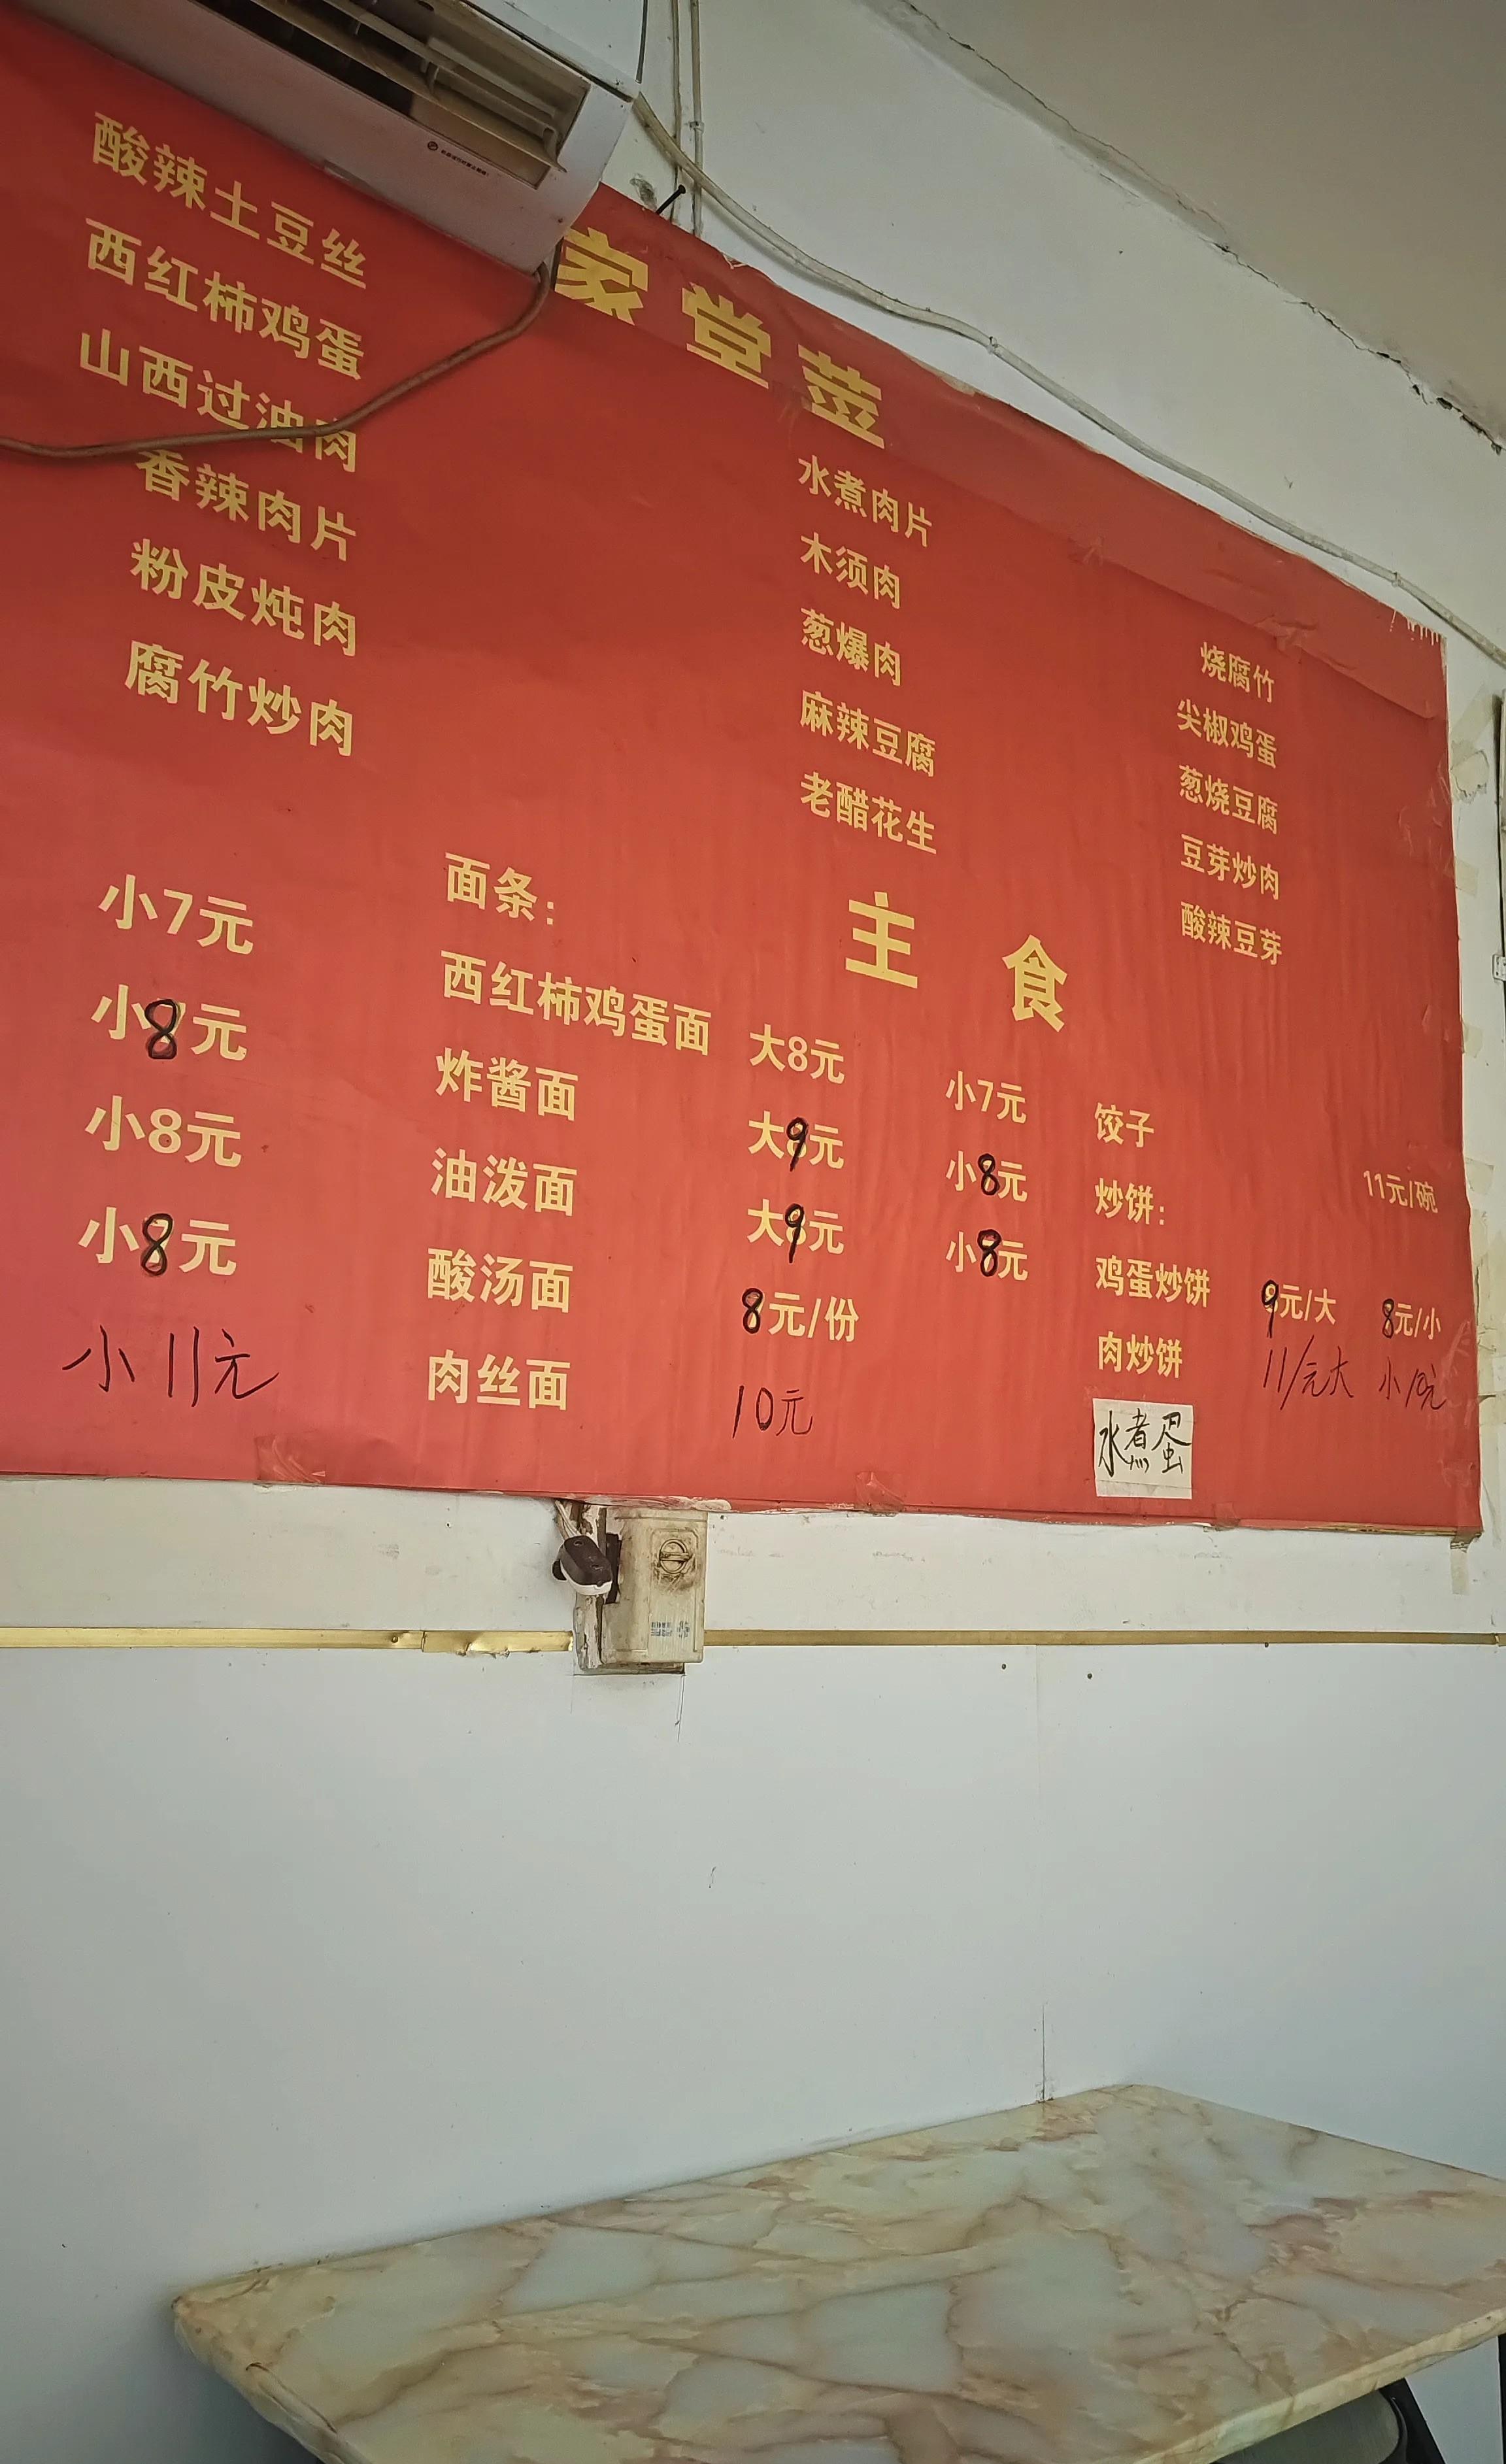 家堂菜
酸辣土豆丝
西红柿鸡蛋
山西过油肉
香辣肉片
粉皮炖肉
腐竹炒肉
水煮肉片
木须肉
葱爆肉
麻辣豆腐
老醋花生
烧腐竹
尖椒鸡蛋
葱烧豆腐
豆芽炒肉
酸辣豆芽
主食
小7元
小8元
小8元
小8元
小11元
面条:
西红柿鸡蛋面 大8元 小7元
炸酱面 大9元 小8元
油泼面 大9元 小8元
酸汤面 8元/份
肉丝面 10元
饺子 11元/碗
炒饼:
鸡蛋炒饼 9元/大 8元/小
肉炒饼 11/元大 小10元
水煮蛋